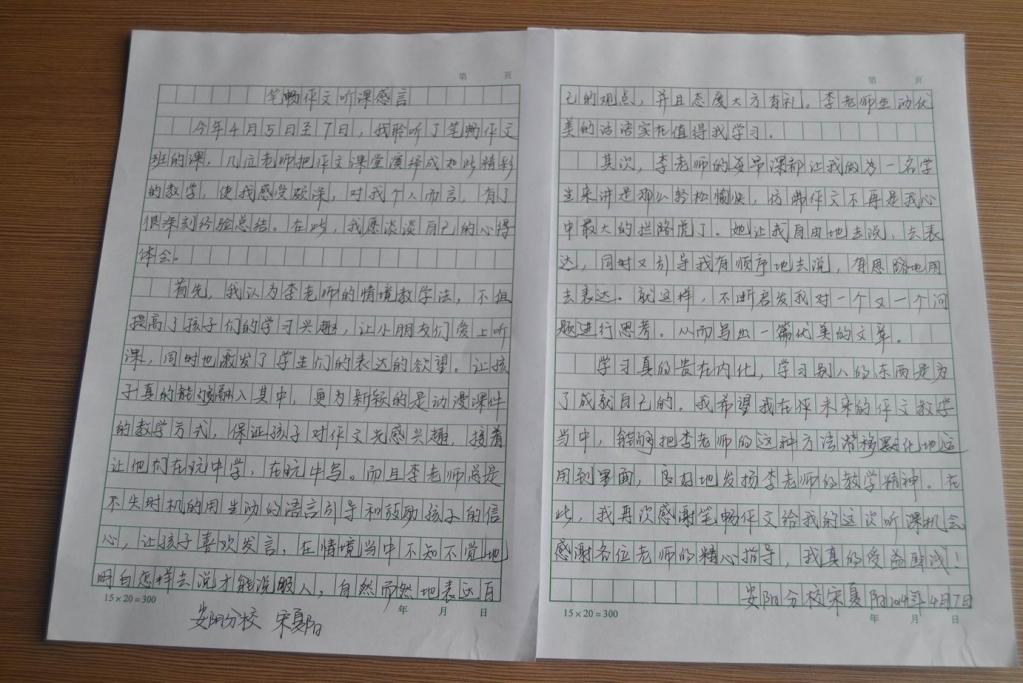 第 页
笔畅作文听课感言
今年4月5日至7日，我聆听了笔畅作文
班的课。几位老师把作文课堂演绎成如此精彩
的教学，使我感受颇深，对我个人而言，有了
很深刻经验总结。在此，我愿谈谈自己的心得
体会。
首先，我认为李老师的情境教学法，不但
提高了孩子们的学习兴趣，让小朋友们爱上听
课，同时也激发了学生们的表达的欲望。让孩
子真的能够融入其中，更为新颖的是动漫课件
的教学方式，保证孩子对作文先感兴趣，接着
让他们在玩中学，在玩中写。而且李老师总是
不失时机的用生动的语言引导和鼓励孩子的信
心，让孩子喜欢发言，在情境当中不知不觉地
明白怎样去说才能说服人，自然而然地表达自
15×20=300 年 月 日
安阳分校 宋夏阳
第 页
己的观点，并且态度大方有礼。李老师生动优
美的话语实在值得我学习。
其次，李老师的每节课都让我的为一名学
生来讲是那么轻松愉快，仿佛作文不再是我心
中最大的拦路虎了。她让我自由地去说，去表
达，同时又引导我有顺序地去说，有思路地用
去表达。就这样，不断启发我对一个又一个问
题进行思考。从而写出一篇优美的文章。
学习真的贵在内化，学习别人的东西是为
了成就自己的，我希望我在评未来的作文教学
当中，能够把李老师的这种方法潜移默化地运
用到里面，良好地发扬李老师的教学精神。在
此，我再次感谢笔畅作文给我的这次听课机会
感谢各位老师的精心指导，我真的受益匪浅！
安阳分校宋夏阳2014年4月7日
15×20=300 年 月 日